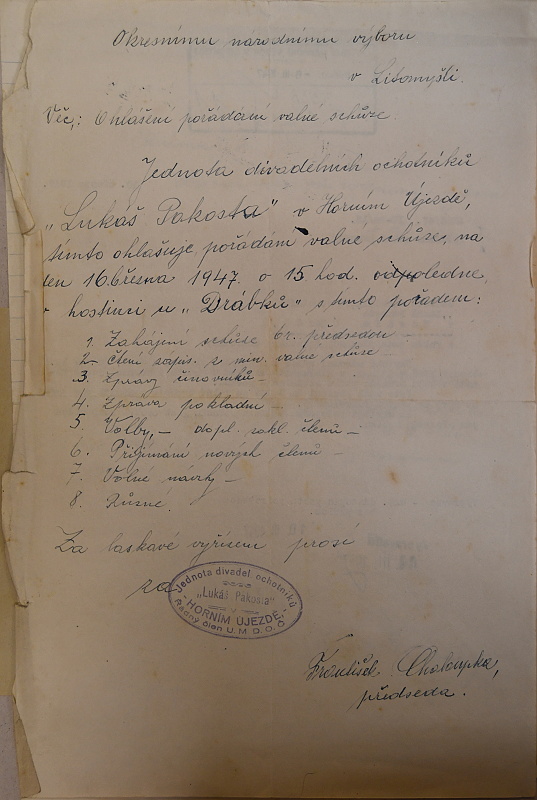 Okresnímu národnímu výboru
v Litomyšli.
Věc: Ohlášení pořádání valné schůze.
Jednota divadelních ochotníků
„Lukáš Pakosta" v Horním Újezdě,
tímto ohlašuje pořádání valné schůze, na
den 16. března 1947 o 15 hod. odpoledne
v hostinci u „Drábků" s tímto pořadem:
1. Zahájení schůze br. předsedou —
2. Čtení zápis. z min. valné schůze
3. Zprávy činovníků —
4. Zpráva pokladní —
5. Volby, — dopl. členů —
6. Přijímání nových členů —
7. Volné návrhy —
8. Různé.
Za laskavé vyřízení prosí
za
Jednota divadel. ochotníků
„Lukáš Pakosta"
v
HORNÍM ÚJEZDĚ.
Řádný člen Ú.M.D.O.Č.
František Chaloupka,
předseda.